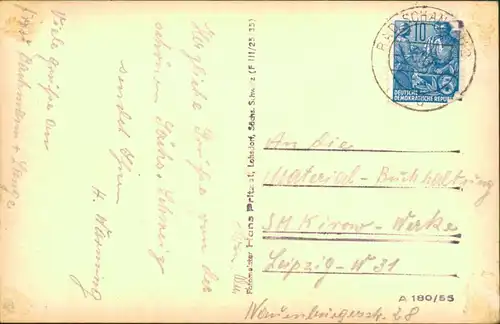 Viele Grüße an
Herzliche Grüße von der
schönen Sächs. Schweiz
sendet Ihnen
H. Wärming
Fotomeister Hans Pritzat, Lohsdorf, Sächs. Schweiz (F III/25 35)
BAD SCHANDAU
10
DEUTSCHE
DEMOKRATISCHE REPUBLIK
An die
Material-Buchhaltung
SM Kirow-Werke
Leipzig-W 31
Naumburgerstr. 28
A 180/55